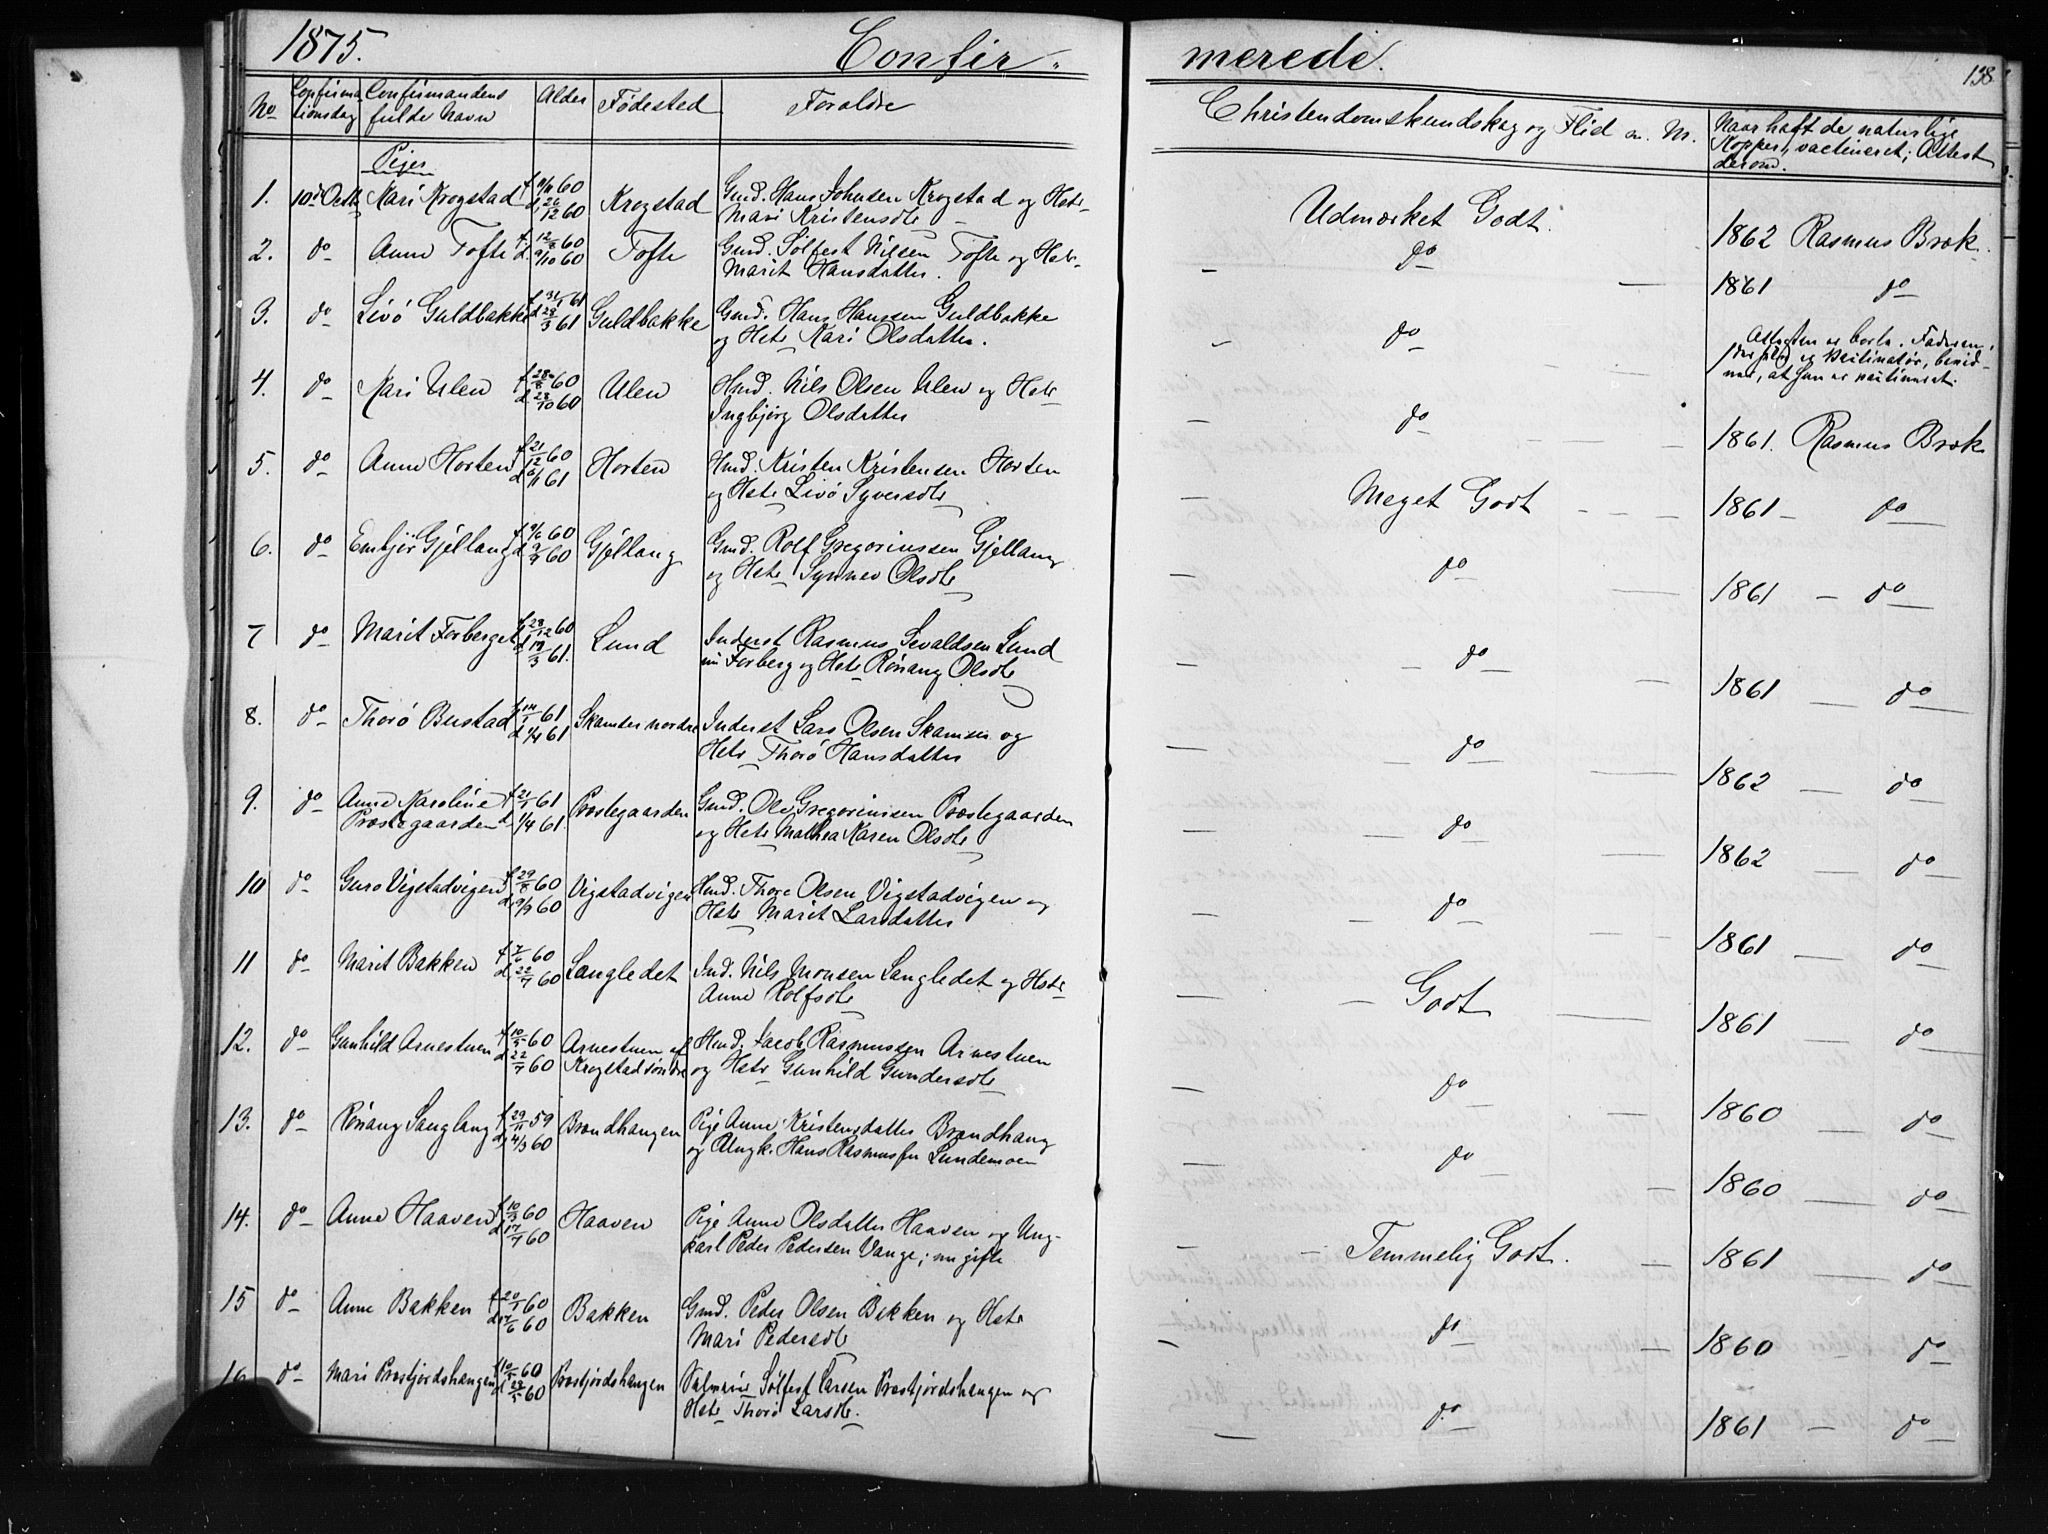 1875.
Confir-
merede.
138
No
Confirmationsdag
Confirmandens fulde Navn
Alder
Fødested
Forældre
Christendomskundskab og Flid m. M.
Naar haft de naturlige
Kopper, vaccineret; Attest
derom.
Piger
1. 10d Octb. Mari Krogstad f 60 d 26/12 60 Krogstad Gmd. Hans Johnsen Krogstad og Hstr
Mari Kristensdtr Udmærket Godt. 1862 Rasmus Bræk.
2. do Anne Tofte f 12/8 60 d 9/10 60 Tofte Gmd. Sølfest Nilsen Tofte og Hstr
Marit Hansdatter. - do - 1861 do
3. do Livø Guldbakke f 31/1 61 d 28/3 61 Guldbakke Gmd. Hans Hanssen Guldbakke
og Hstr Kari Olsdatter. - do Attesten er borte. Faderen,
der er Vaccinatør, bevid-
ner, at hun er vaccineret.
4. do Kari Ulen f 28/8 60 d 28/10 60 Ulen Hmd. Nils Olsen Ulen og Hstr
Ingbjørg Olsdatter do 1861. Rasmus Bræk
5. do Anne Horten f 21/12 60 d 6/1 61 Horten Hmd. Kristen Kristensen Horten
og Hstr Livø Syversdtr - Meget Godt - - - 1861 - do
6. do Embjør Gjellang f 9/6 60 d 2/9 60 Gjellang Gmd. Rolf Gregoriussen Gjellang
og Hstr Synnev Olsdtr - do - 1861 - do
7 do Marit Forberget f 28/12 60 d 19/3 61. Lund Inderst Rasmus Sevaldsen Lund
nu Forberg og Hstr Rønaug Olsdtr - - do - 1861 - do
8. do Thorø Bustad f 14/1 61 d 1/4 61 Skamsar nordre Inderst Lars Olsen Skamsar og
Hstr Thorø Hansdatter - - do - 1862 - do
9. do Anne Karoline
Præstegaarden f 21/1 61 d 1/4 61. Præstegaarden Gmd. Ole Gregoriussen Præstegaarden
og Hstr Mathea Karen Olsdtr - - do - 1862 do
10 do Guro Vigstadvigen f 29/8 60 d 9/9 60 Vigstadvigen Hmd. Thore Olsen Vigstadvigen og
Hstr Marit Larsdatter - - do 1861 - do
11 do Marit Bakken f 7/6 60 d 22/7 60 Langledet Ind. Nils Monsen Langledet og Hstr
Anne Rolfsdtr - - Godt - 1861 do
12. do Gunhild Arnestuen f 10/5 60 d 22/7 60 Arnestuen af
Krogstad søndre Hmd. Jacob Rasmussen Arnestuen
og Hstr Gunhild Gundersdtr - do 1860 - do
13. do Rønaug Langlang f 29/11 59 d 4/3 60 Brændhaugen Pige Anne Kristensdatter Brændhaug
og Ungk. Hans Rasmussen Lundemoen - do - 1860 - do
14. do Anne Haaven f 10/3 60 d 17/7 60 Haaven Pige Anne Olsdatter Haaven og Ung-
karl Peder Pedersen Vange; nu gifte - - Temmelig Godt. - 1861 - do
15 do Anne Bakken f 20/1 60 d 17/6 60 Bakken Gmd. Peder Olsen Bakken og Hstr
Mari Pedersdtr - do - 1860 - do
16 do Mari Præstjordshaugen f 10/5 60 d 28/5 60 Præstjordshaugen Sølfest Larsen Præstjordshaugen og
Hstr Thorø Larsdtr. - do 1861 - do